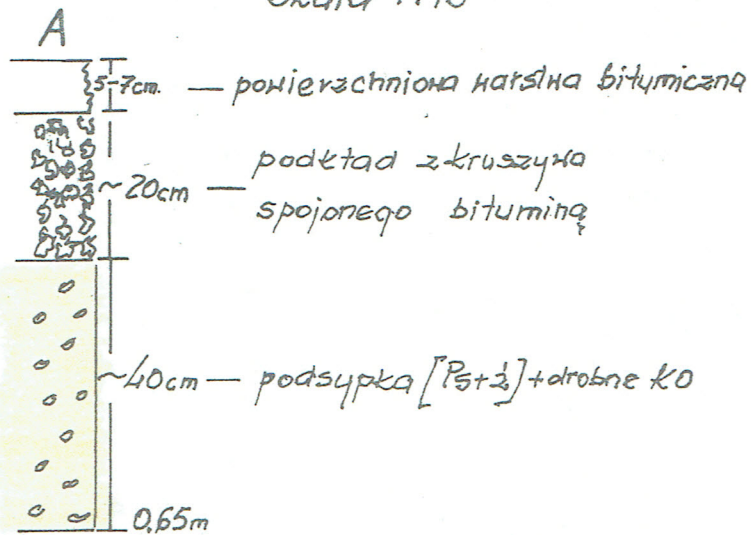 A
5-7cm. — powierzchniowa warstwa bitumiczna
~20cm — podkład z kruszywa
spojonego bituminą
~40cm — podsypka [Ps+ż]+drobne KO
0,65m